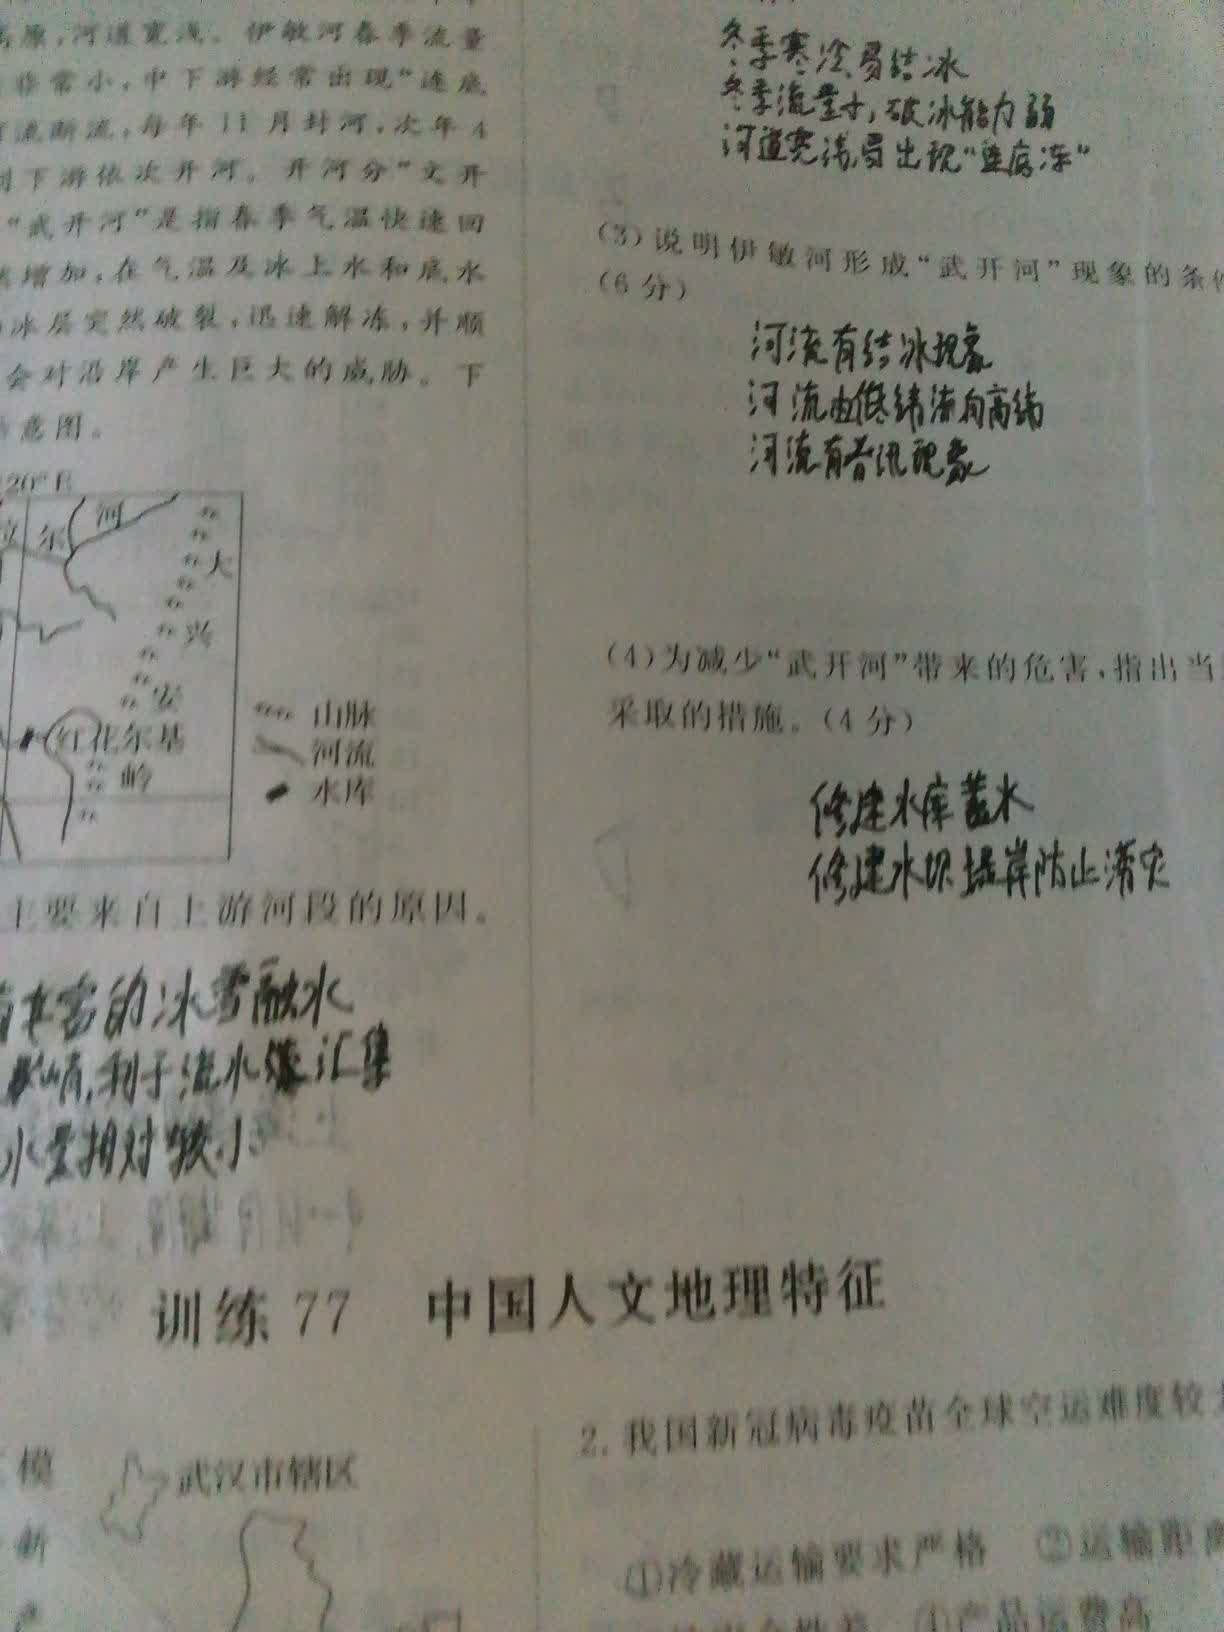 原，河道宽浅。伊敏河春季流量
非常小，中下游经常出现“连底
河流断流，每年11月封河，次年4
到下游依次开河。开河分“文开
“武开河”是指春季气温快速回
增加，在气温及冰上水和底水
冰层突然破裂，迅速解冻，并顺
会对沿岸产生巨大的威胁。下
意图。
20°E
尔 河
大
兴
安
红花尔基
岭
山脉
河流
水库
主要来自上游河段的原因。
丰富的冰雪融水
峭，利于流水 汇集
水量相对较小
冬季寒冷易结冰
冬季流量小，破冰能力弱
河道宽浅，易出现“连底冻”
(3)说明伊敏河形成“武开河”现象的条件
(6分)
河流有结冰现象
河流由低纬流向高纬
河流有春汛现象
(4)为减少“武开河”带来的危害，指出当
采取的措施。(4分)
修建水库蓄水
修建水坝堤岸防止 灾
训练77 中国人文地理特征
模
武汉市辖区
新
2. 我国新冠病毒疫苗全球空运难度较
①冷藏运输要求严格 ②运输距离
④产品运费高